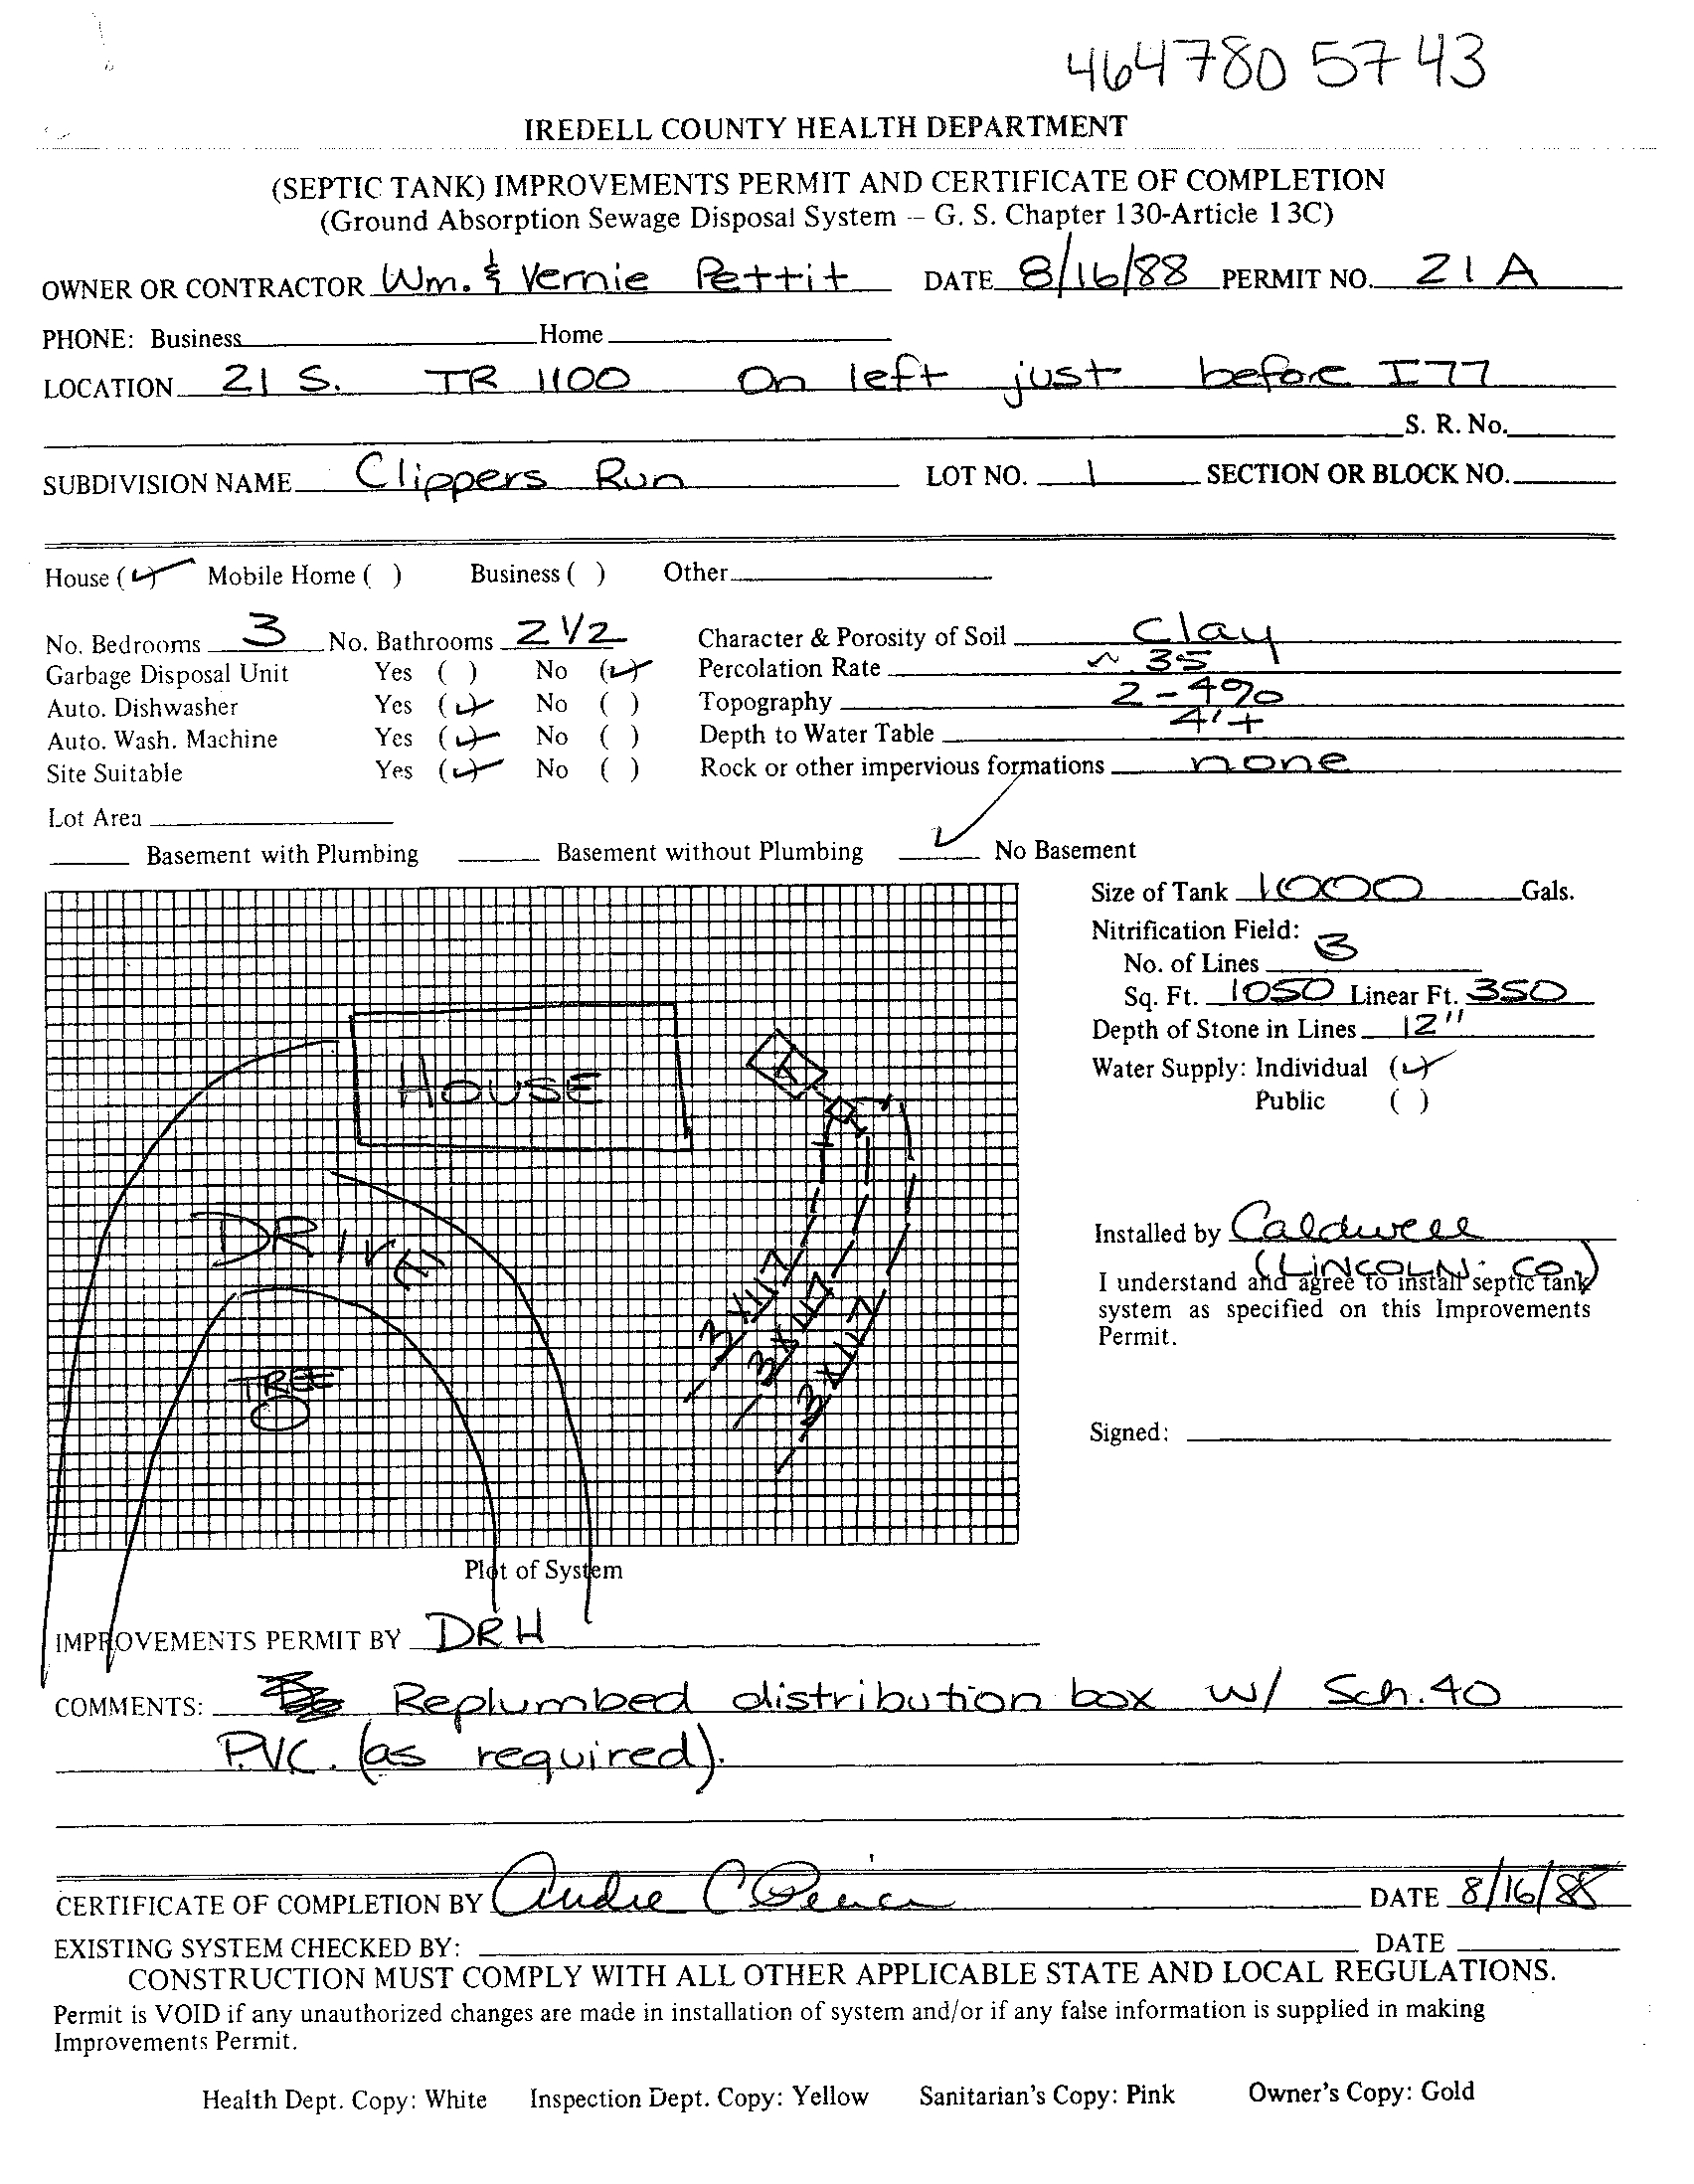 4647805743
IREDELL COUNTY HEALTH DEPARTMENT
(SEPTIC TANK) IMPROVEMENTS PERMIT AND CERTIFICATE OF COMPLETION
(Ground Absorption Sewage Disposal System -- G. S. Chapter 130-Article 13C)
OWNER OR CONTRACTOR Wm. & Vernie Pettit DATE 8/16/88 PERMIT NO. 21A
PHONE: Business Home
LOCATION 21 S. TR 1100 On left just before I77
S. R. No.
SUBDIVISION NAME Clippers Run LOT NO. 1 SECTION OR BLOCK NO.
House (✓) Mobile Home ( ) Business ( ) Other
No. Bedrooms 3 No. Bathrooms 2 1/2 Character & Porosity of Soil Clay
Garbage Disposal Unit Yes ( ) No (✓) Percolation Rate ~.35
Auto. Dishwasher Yes (✓) No ( ) Topography 2-4%
Auto. Wash. Machine Yes (✓) No ( ) Depth to Water Table 4'+
Site Suitable Yes (✓) No ( ) Rock or other impervious formations none
Lot Area
Basement with Plumbing Basement without Plumbing ✓ No Basement
Size of Tank 1000 Gals.
Nitrification Field:
No. of Lines 3
Sq. Ft. 1050 Linear Ft. 350
Depth of Stone in Lines 12"
Water Supply: Individual (✓)
Public ( )
HOUSE
T
DRIVE
TREE
3X117
3X117
3X117
Installed by Caldwell
(LINCOLN CO.)
I understand and agree to install septic tank
system as specified on this Improvements
Permit.
Signed:
Plot of System
IMPROVEMENTS PERMIT BY DRH
COMMENTS: Replumbed distribution box w/ Sch. 40
PVC. (as required).
CERTIFICATE OF COMPLETION BY Andre C DATE 8/16/88
EXISTING SYSTEM CHECKED BY: DATE
CONSTRUCTION MUST COMPLY WITH ALL OTHER APPLICABLE STATE AND LOCAL REGULATIONS.
Permit is VOID if any unauthorized changes are made in installation of system and/or if any false information is supplied in making
Improvements Permit.
Health Dept. Copy: White Inspection Dept. Copy: Yellow Sanitarian's Copy: Pink Owner's Copy: Gold